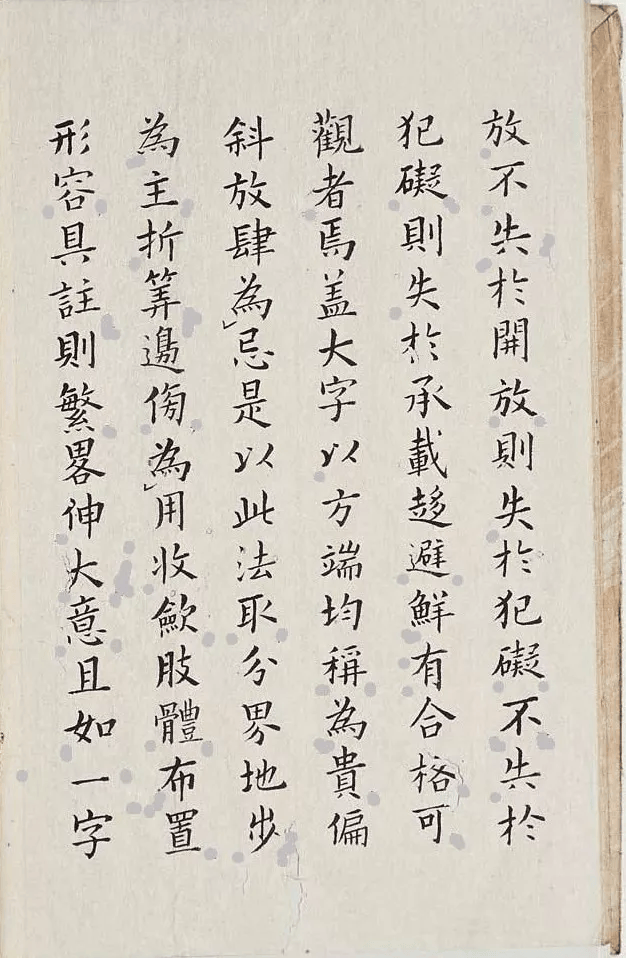 放不失於開放則失於犯礙不失於
犯礙則失於承載趍避鮮有合格可
觀者焉盖大字以方端均稱為貴偏
斜放肆為忌是以此法取分界地步
為主折筭邊傍為用收歛肢體布置
形容具註則繁畧伸大意且如一字